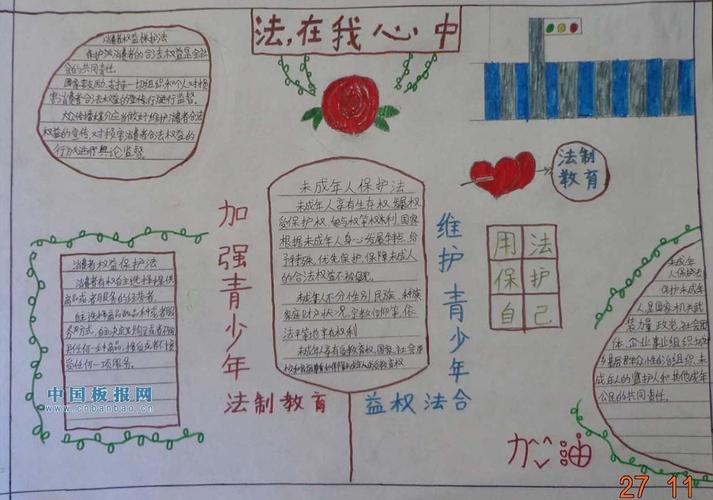 法,在我心中
消费者权益保护法
保护消费者的合法权益是全社
会的共同责任。
国家鼓励、支持一切组织和个人对损
害消费者合法权益的行为进行社会监督。
大众传播媒介应当做好维护消费者合法
权益的宣传,对损害消费者合法权益的
行为进行舆论监督。
法制
教育
未成年人保护法
未成年人享有生存权、发展权
受保护权、参与权等权利,国家
根据未成年人身心发展特点给
予特殊、优先保护,保障未成人
的合法权益不被侵犯。
未成年人不分性别、民族、种族
家庭财产状况、宗教信仰等,依
法平等地享有权利
未成年人享有受教育权,国家、社会
加强青少年
法制教育
维护青少年
益权法合
用法
保护
自己
消费者权益保护法
消费者有权自主选择提供
商品或者服务的经营者,
自主选择商品品种或者服
务方式,自主决定购买或者不购
买任何一种商品、接受或者不接
受任何一项服务。
未成年
人保护法
保护未成年
人是国家机关武
装力量、政党、社会团
体、企业事业组织、城
乡基层群众性自治组织、未
成年人的监护人和其他成年
公民的共同责任。
加油
中国板报网
www.cnbanbao.cn
27 11